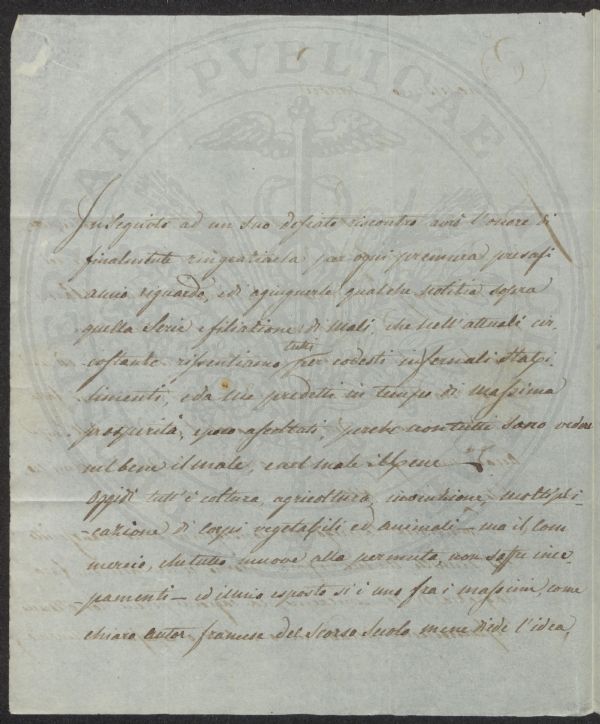 In seguito ad un suo desiato riscontro avrò l'onore di
finalmente ringraziarla per ogni premura presasi
a mio riguardo, ed agiungerle qualche notitia sopra
quella serie e filiatione di mali, che nell'attuali cir
costanze risentiamo tutti per codesti infernali Stabi-
limenti, e da me predetti in tempo di massima
prosperità, e poco ascoltati, perche non tutti sano vedere
nel bene il male, e nel male il bene
Oggidì tutt'è coltura, agricoltura, invenzione, moltipli-
cazione di corpi vegetabili ed animali — ma il com
mercio, che tutto muove alla permuta, non soffre ince-
pamenti — ed il mio esposto si è uno fra i massimi, come
chiaro autor francese del scorso secolo mene diede l'idea,
PVBLICAE